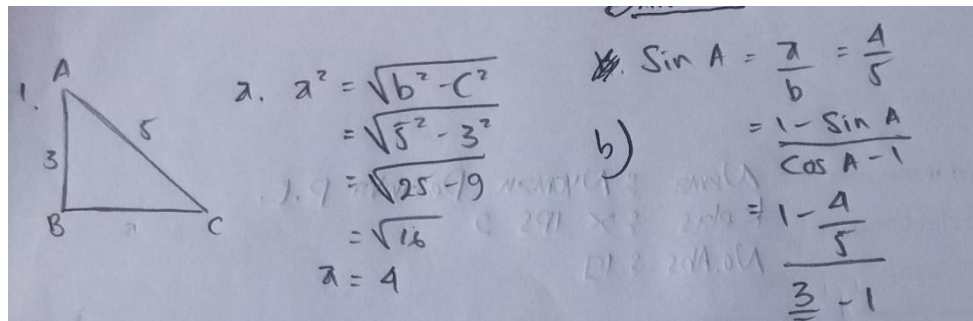 1.
A
3
5
B
C
a. a² = √b² - c²
= √5² - 3²
= √25 - 9
= √16
a = 4
Sin A = a/b = 4/5
b)
= 1 - Sin A / Cos A - 1
= 1 - 4/5 / 3/5 - 1